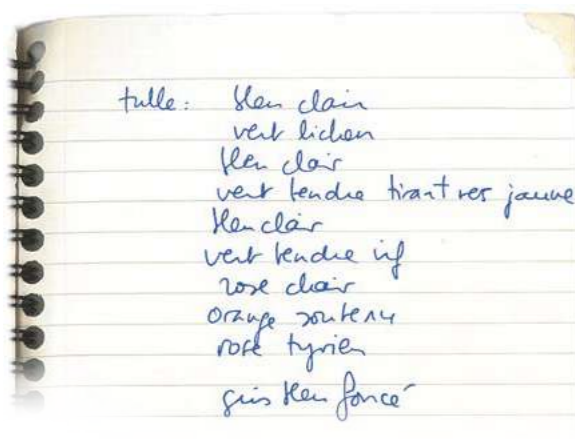 tulle: bleu clair
vert lichen
bleu clair
vert tendre tirant vers jaune
bleu clair
vert tendre vif
rose chair
orange soutenu
rose tyrien
gris bleu foncé